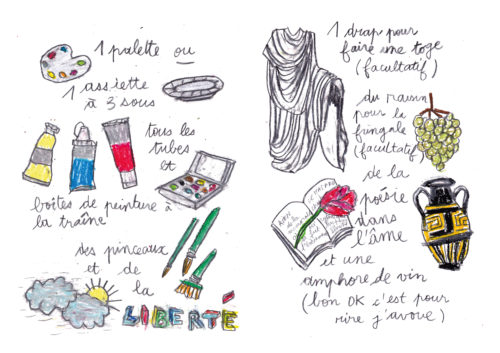 1 palette ou
1 assiette
à 3 sous
tous les
tubes
et
boîtes de peinture à
la traîne
des pinceaux
et de
la
LIBERTÉ
1 drap pour
faire une toge
(facultatif)
du raisin
pour la
fringale
(facultatif)
de la
poésie
dans
l'âme
et une
amphore de vin
(bon OK c'est pour
rire j'avoue)